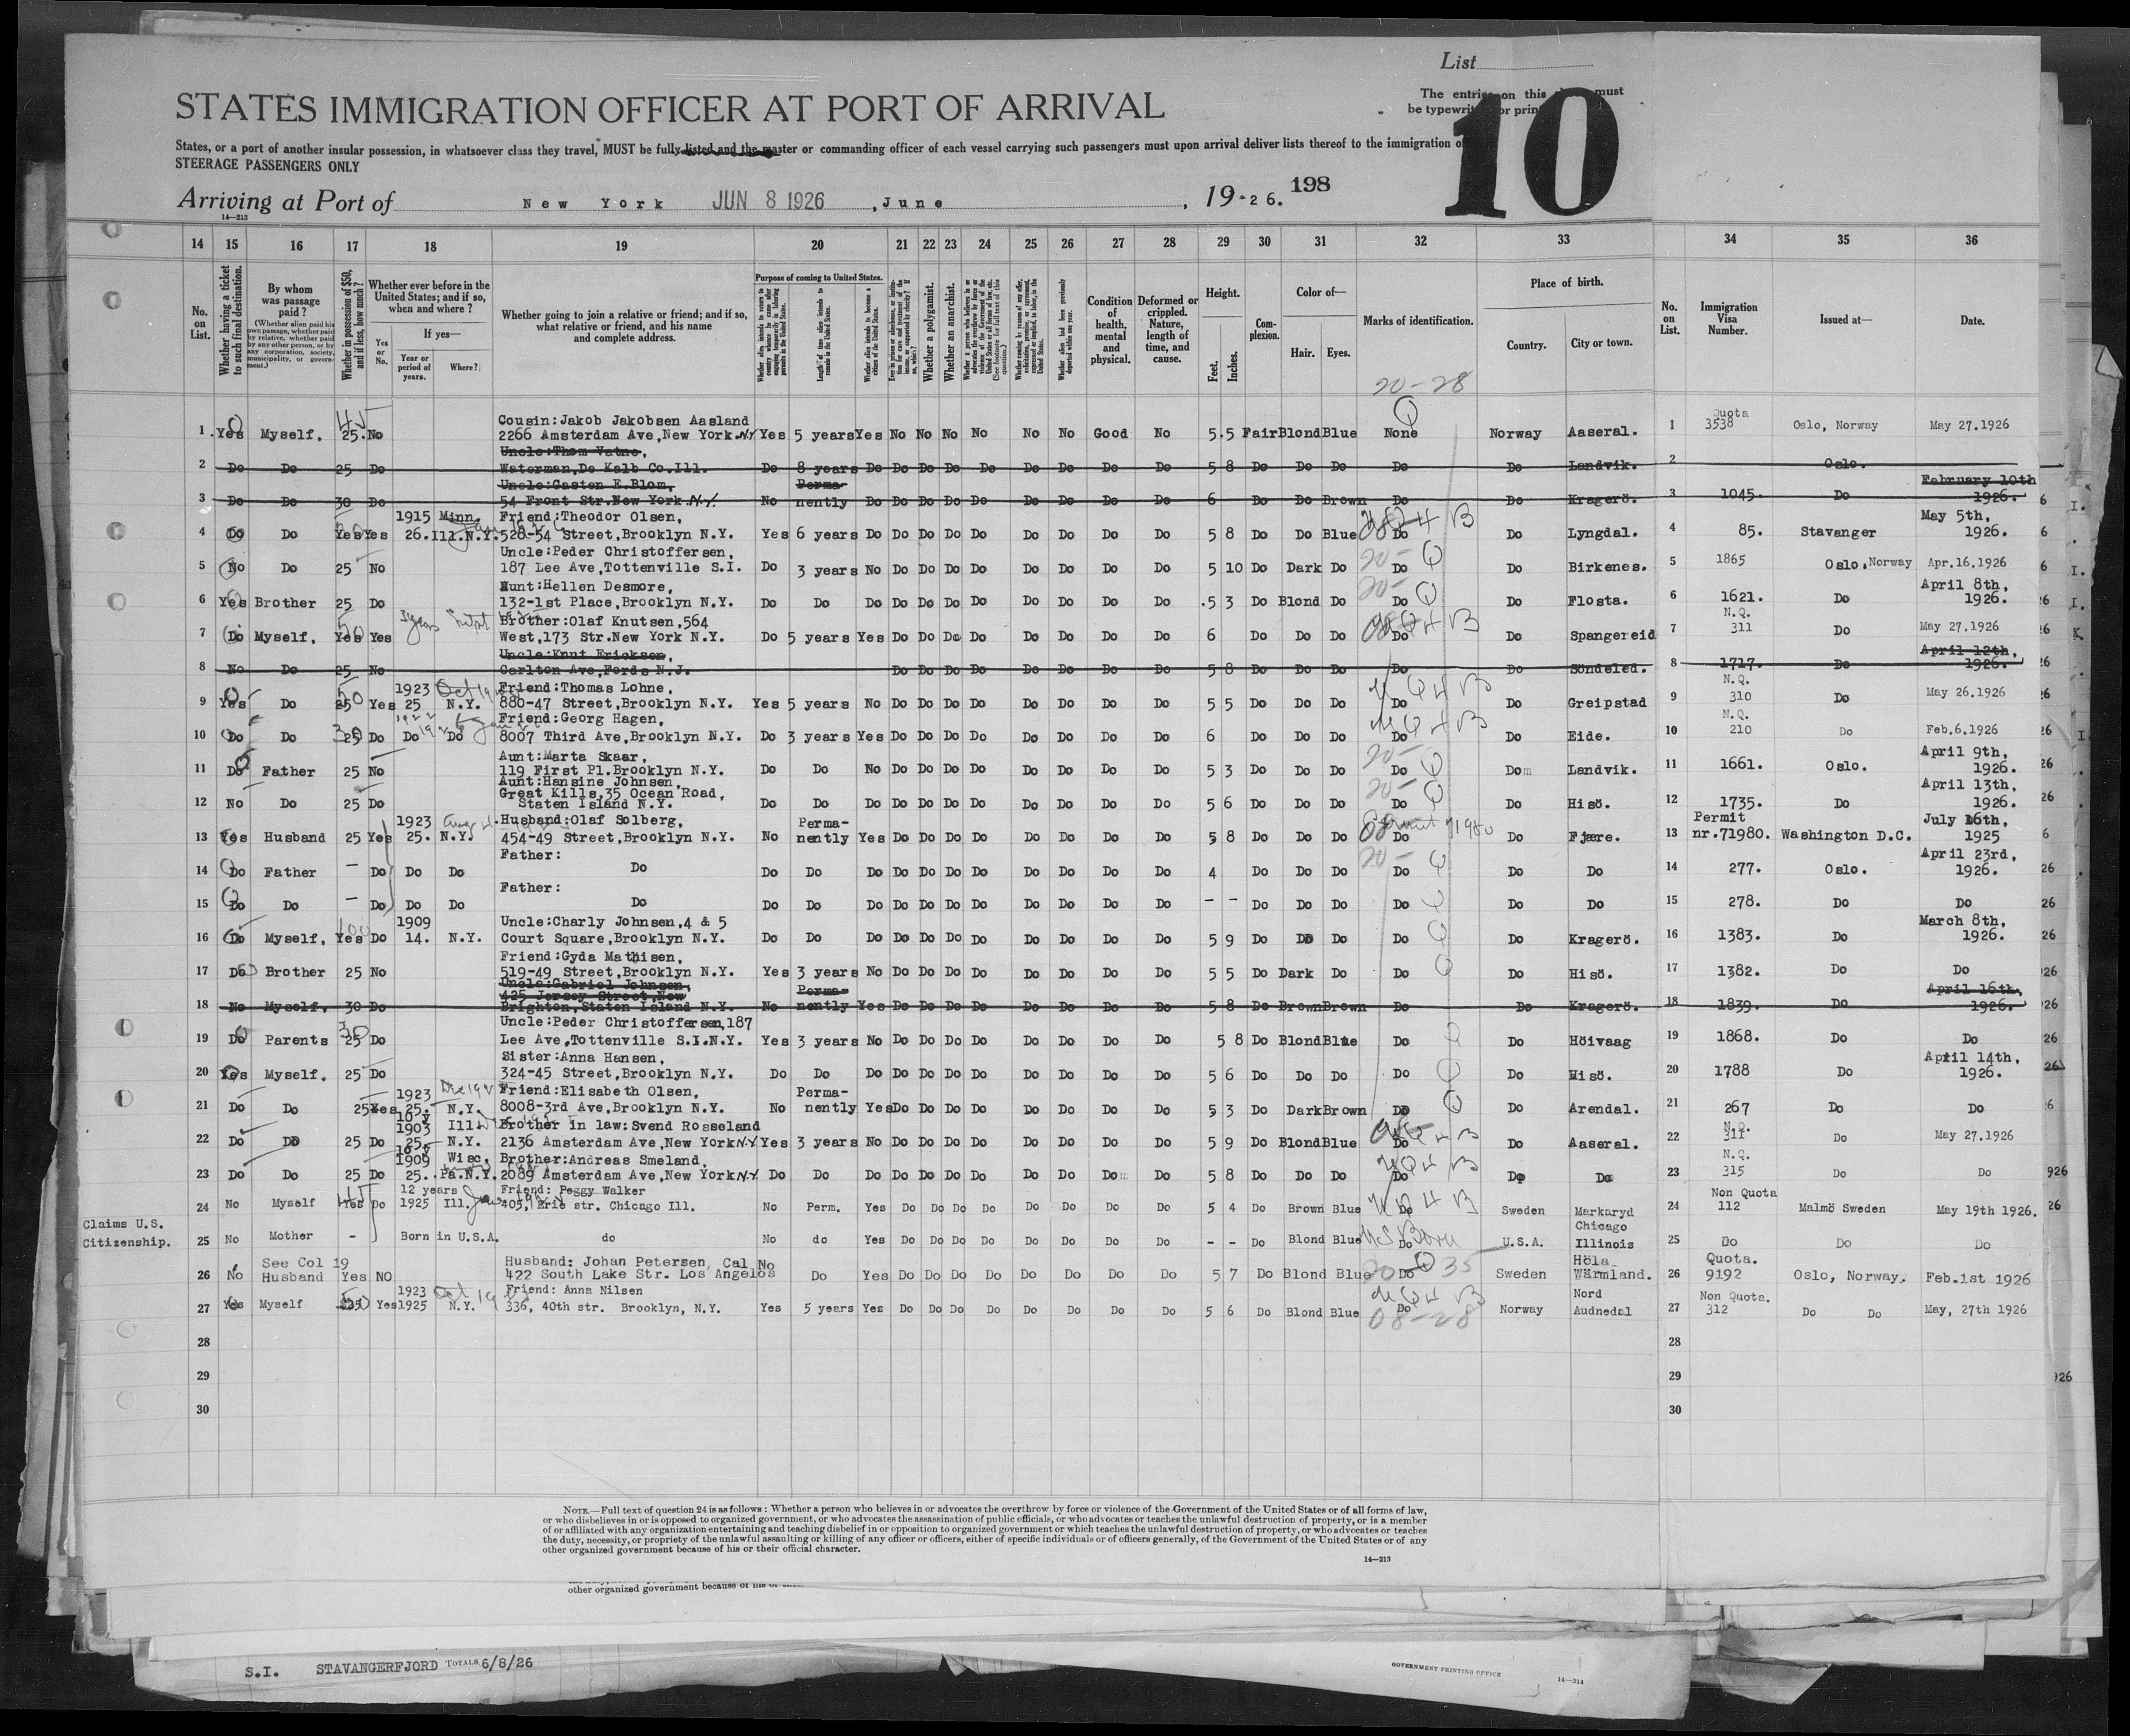 List
The entries on this must
be typewrit or prin
10
STATES IMMIGRATION OFFICER AT PORT OF ARRIVAL
States, or a port of another insular possession, in whatsoever class they travel, MUST be fully listed and the master or commanding officer of each vessel carrying such passengers must upon arrival deliver lists thereof to the immigration
STEERAGE PASSENGERS ONLY
Arriving at Port of New York JUN 8 1926 , June , 19-26. 198
14—213
14 15 16 17 18 19 20 21 22 23 24 25 26 27 28 29 30 31 32 33 34 35 36
No. on List.
Whether having a ticket to such final destination.
By whom was passage paid?
(Whether alien paid his own passage, whether paid by relative, whether paid by any other person, or by any corporation, society, municipality, or government.)
Whether in possession of $50, and if less, how much?
Whether ever before in the United States; and if so, when and where?
Yes or No.
If yes—
Year or period of years.
Where?
Whether going to join a relative or friend; and if so, what relative or friend, and his name and complete address.
Purpose of coming to United States.
Length of time alien intends to remain in the United States.
Whether alien intends to become a citizen of the United States.
Whether a polygamist.
Whether an anarchist.
Condition of health, mental and physical.
Deformed or crippled. Nature, length of time, and cause.
Height.
Feet. Inches.
Complexion.
Color of—
Hair. Eyes.
Marks of identification.
Place of birth.
Country. City or town.
No. on List.
Immigration Visa Number.
Issued at—
Date.
20-28
Cousin:Jakob Jakobsen Aasland Quota
1 Yes Myself. 25. No 2266 Amsterdam Ave,New York N.Y. Yes 5 years Yes No No No No No No Good No 5.5 Fair Blond Blue None Norway Aaseral. 1 3538 Oslo, Norway May 27.1926
Uncle:Thom Vatne,
2 Do Do 25 Do Waterman,De Kalb Co.Ill. Do 8 years Do Do Do Do Do Do Do Do Do 5 8 Do Do Do Do Do Landvik. 2 Oslo.
Uncle:Gasten E.Blom, Perma- February 10th
3 Do Do 30 Do 54 Front Str.New York N.Y. No nently Do Do Do Do Do Do Do Do Do 6 Do Do Brown Do Do Kragerö. 3 1045. Do 1926.
1915 Minn. Friend:Theodor Olsen, May 5th,
4 Do Do Yes Yes 26. Ill.N.Y. 528-54 Street,Brooklyn N.Y. Yes 6 years Do Do Do Do Do Do Do Do Do 5 8 Do Do Blue Do Do Lyngdal. 4 85. Stavanger 1926.
Uncle:Peder Christoffersen,
5 No Do 25 No 187 Lee Ave,Tottenville S.I. Do 3 years No Do Do Do Do Do Do Do Do 5 10 Do Dark Do Do Do Birkenes. 5 1865 Oslo, Norway Apr.16.1926
Aunt:Hellen Desmore, April 8th,
6 Yes Brother 25 Do 132-1st Place,Brooklyn N.Y. Do Do Do Do Do Do Do Do Do Do Do 5 3 Do Blond Do Do Do Flosta. 6 1621. Do 1926.
Brother:Olaf Knutsen,564 N.Q.
7 Do Myself. Yes Yes West,173 Str.New York N.Y. Do 5 years Yes Do Do Do Do Do Do Do Do 6 Do Do Do Do Do Spangereid 7 311 Do May 27.1926
Uncle:Knut Ericksen, April 12th,
8 No Do 25 No Carlton Ave,Fords N.J. Do Do Do Do Do Do Do Do 5 8 Do Do Do Do Do Söndeled. 8 1717. Do 1926.
1923 Friend:Thomas Lohne, N.Q.
9 Yes Do 25 Yes 25 N.Y. 880-47 Street,Brooklyn N.Y. Yes 5 years No Do Do Do Do Do Do Do Do 5 5 Do Do Do Do Do Greipstad 9 310 Do May 26.1926
Friend:Georg Hagen, N.Q.
10 Do Do 25 Do Do Do 8007 Third Ave,Brooklyn N.Y. Do 3 years Yes Do Do Do Do Do Do Do Do 6 Do Do Do Do Do Eide. 10 210 Do Feb.6.1926
Aunt:Marta Skaar, April 9th,
11 Do Father 25 No 119 First Pl.Brooklyn N.Y. Do Do No Do Do Do Do Do Do Do Do 5 3 Do Do Do Do Do Landvik. 11 1661. Oslo. 1926.
Aunt:Hansine Johnsen, April 13th,
Great Kills,35 Ocean Road,
12 No Do 25 Do Staten Island N.Y. Do Do Do Do Do Do Do Do Do Do Do 5 6 Do Do Do Do Do Hisö. 12 1735. Do 1926.
1923 Husband:Olaf Solberg, Perma- Permit July 16th,
13 Yes Husband 25 Yes 25. N.Y. 454-49 Street,Brooklyn N.Y. No nently Yes Do Do Do Do Do Do Do Do 5 8 Do Do Do Do Do Fjære. 13 nr.71980. Washington D.C. 1925
Father: April 23rd,
14 Do Father - Do Do Do Do Do Do Do Do Do Do Do Do Do Do Do 4 Do Do Do Do Do Do 14 277. Oslo. 1926.
Father:
15 Do Do - Do Do Do Do Do Do Do Do Do Do Do Do Do Do Do - - Do Do Do Do Do Do 15 278. Do Do
1909 Uncle:Charly Johnsen,4 & 5 March 8th,
16 Do Myself. Yes Do 14. N.Y. Court Square,Brooklyn N.Y. Do Do Do Do Do Do Do Do Do Do Do 5 9 Do Do Do Do Do Kragerö. 16 1383. Do 1926.
Friend:Gyda Mathisen,
17 Do Brother 25 No 519-49 Street,Brooklyn N.Y. Yes 3 years No Do Do Do Do Do Do Do Do 5 5 Do Dark Do Do Do Hisö. 17 1382. Do Do
Uncle:Gabriel Johnsen,
425 Jersey Street,New Perma- April 16th,
18 No Myself. 30 Do Brighton,Staten Island N.Y. No nently Yes Do Do Do Do Do Do Do Do 5 8 Do Brown Brown Do Do Kragerö. 18 1839. Do 1926.
Uncle:Peder Christoffersen,187
19 Do Parents 25 Do Lee Ave,Tottenville S.I.N.Y. Yes 3 years No Do Do Do Do Do Do Do Do 5 8 Do Blond Blue Do Do Höivaag 19 1868. Do Do
Sister:Anna Hansen, April 14th,
20 Yes Myself. 25 Do 324-45 Street,Brooklyn N.Y. Do Do Do Do Do Do Do Do Do Do Do 5 6 Do Do Do Do Do Hisö. 20 1788 Do 1926.
1923 Friend:Elisabeth Olsen, Perma-
21 Do Do 25 Yes 25. N.Y. 8008-3rd Ave,Brooklyn N.Y. No nently Yes Do Do Do Do Do Do Do Do 5 3 Do Dark Brown Do Do Arendal. 21 267 Do Do
10 y
1903 Ill Brother in law:Svend Rosseland N.Q.
22 Do Do 25 Do 25. N.Y. 2136 Amsterdam Ave,New York N.Y. Yes 3 years No Do Do Do Do Do Do Do Do 5 9 Do Blond Blue Do Do Aaseral. 22 311 Do May 27.1926
16 y
1909 Wisc. Brother:Andreas Smeland, N.Q.
23 Do Do 25 Do 25. Pa.N.Y. 2089 Amsterdam Ave,New York N.Y. Do Do Do Do Do Do Do Do Do Do Do 5 8 Do Do Do Do Do Do 23 315 Do Do
12 years Friend: Peggy Walker Non Quota
24 No Myself Yes Do 1925 Ill. 405, Erie str. Chicago Ill. No Perm. Yes Do Do Do Do Do Do Do Do 5 4 Do Brown Blue Do Sweden Markaryd 24 112 Malmö Sweden May 19th 1926.
Claims U.S. Chicago
Citizenship. 25 No Mother - Born in U.S.A. do No do Yes Do Do Do Do Do Do Do Do - - Do Blond Blue Do U.S.A. Illinois 25 Do Do Do
See Col 19 Husband: Johan Petersen, Cal No Höla Quota.
26 No Husband Yes NO 422 South Lake Str. Los Angelos Do Yes Do Do Do Do Do Do Do Do 5 7 Do Blond Blue Do Sweden Wärmland. 26 9192 Oslo, Norway. Feb.1st 1926
1923 Friend: Anna Nilsen Nord Non Quota.
27 Yes Myself Yes 1925 N.Y. 336, 40th str. Brooklyn, N.Y. Yes 5 years Yes Do Do Do Do Do Do Do Do 5 6 Do Blond Blue Do Norway Audnedal 27 312 Do Do May, 27th 1926
08-28
28 28
29 29
30 30
NOTE.—Full text of question 24 is as follows: Whether a person who believes in or advocates the overthrow by force or violence of the Government of the United States or of all forms of law,
or who disbelieves in or is opposed to organized government, or who advocates the assassination of public officials, or who advocates or teaches the unlawful destruction of property, or is a member
of or affiliated with any organization entertaining and teaching disbelief in or opposition to organized government or which teaches the unlawful destruction of property, or who advocates or teaches
the duty, necessity, or propriety of the unlawful assaulting or killing of any officer or officers, either of specific individuals or of officers generally, of the Government of the United States or of any
other organized government because of his or their official character.
14—213
other organized government because of his or
S.I. STAVANGERFJORD TOTALS 6/8/26
GOVERNMENT PRINTING OFFICE 14—214